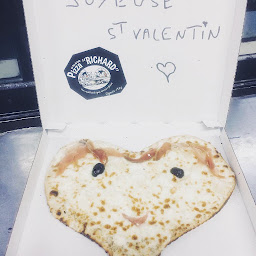 JOYEUSE
ST VALENTIN
PIZZA "RICHARD"